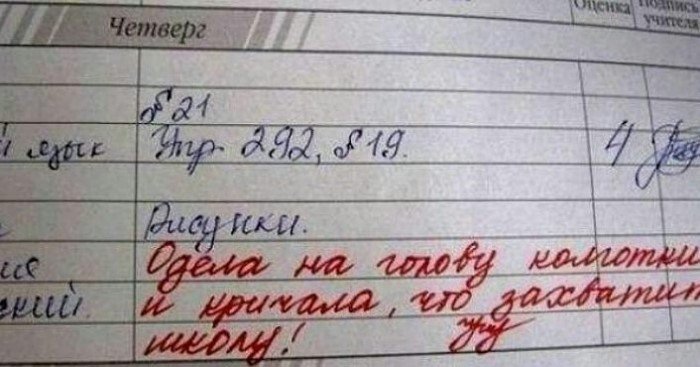 Оценка Подпись
учителя
Четверг
№21
й язык Упр. 292, §19. 4
Рисунки.
ие Одела на голову колготки
ский. и кричала, что захватит
школу!